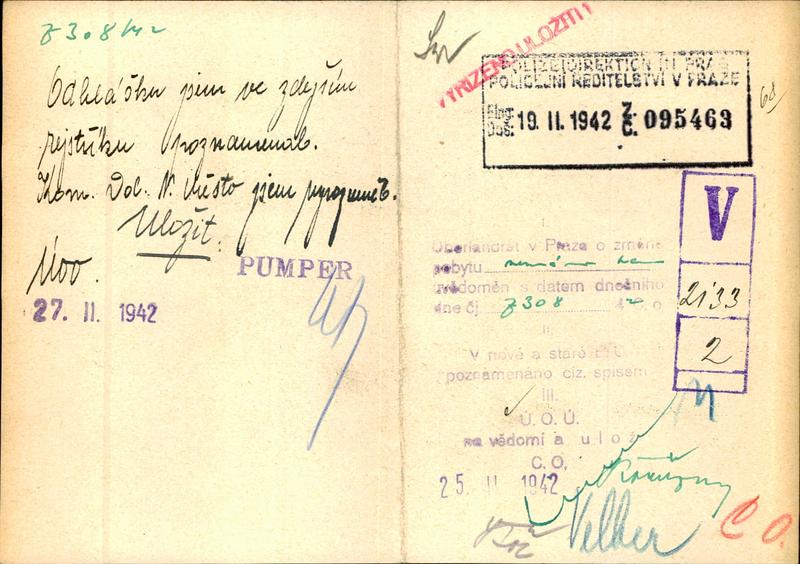 Z 308/42
Odhlášku jsem ve zdejším
rejstříku poznamenal.
Kom. Dol. N. Město jsem vyrozuměl.
Uložit.
ÚOO.
PUMPER
27. II. 1942
VYŘÍZENO ULOŽITI!
POLIZEIDIREKTION IN PRAG
POLICEJNÍ ŘEDITELSTVÍ V PRAZE
Eing.
Doš. 19. II. 1942 Z. Č. 095463
68
V
2133
2
I.
Oberlandrat v Praze o změně
pobytu
uvědoměn s datem dnešního
dne čj Z308 42.
II.
V nové a staré
poznamenáno ciz. spisem
III.
Ú. O. Ú.
na vědomí a ulož
C. O.
25. II. 1942
Velber
C O.